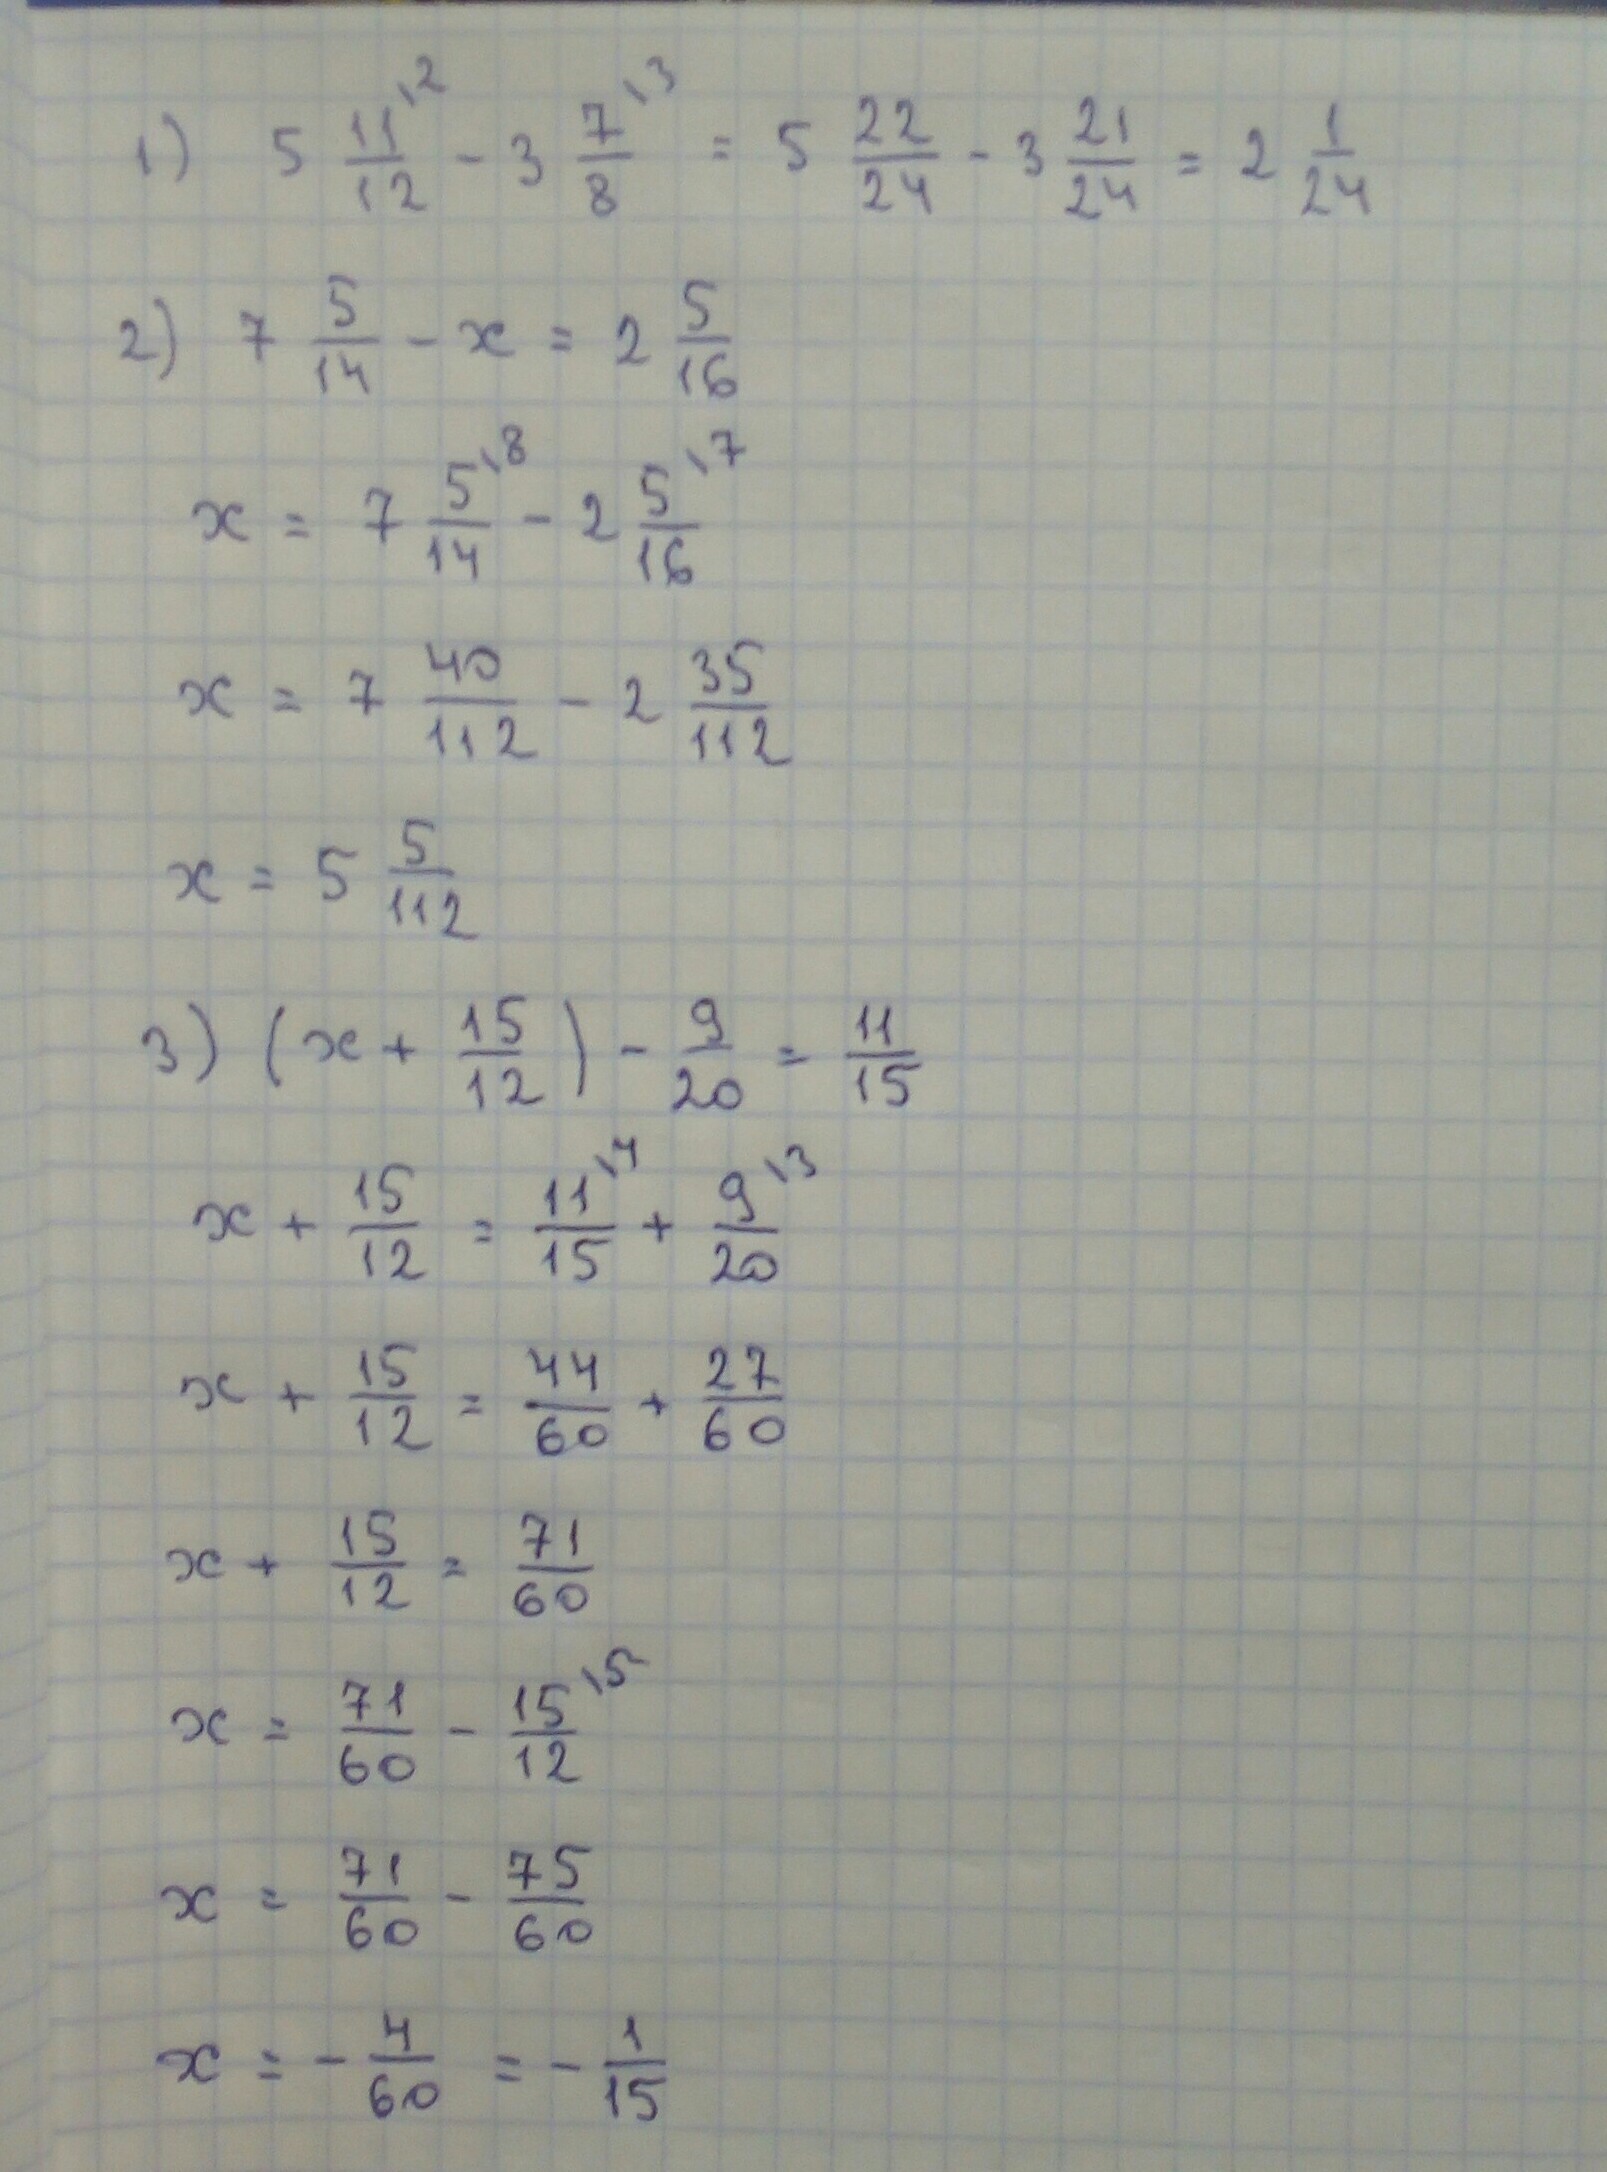 1) 5 11/12 \2 - 3 7/8 \3 = 5 22/24 - 3 21/24 = 2 1/24
2) 7 5/14 - x = 2 5/16
x = 7 5/14 \8 - 2 5/16 \7
x = 7 40/112 - 2 35/112
x = 5 5/112
3) (x + 15/12) - 9/20 = 11/15
x + 15/12 = 11/15 \4 + 9/20 \3
x + 15/12 = 44/60 + 27/60
x + 15/12 = 71/60
x = 71/60 - 15/12 \5
x = 71/60 - 75/60
x = - 4/60 = - 1/15